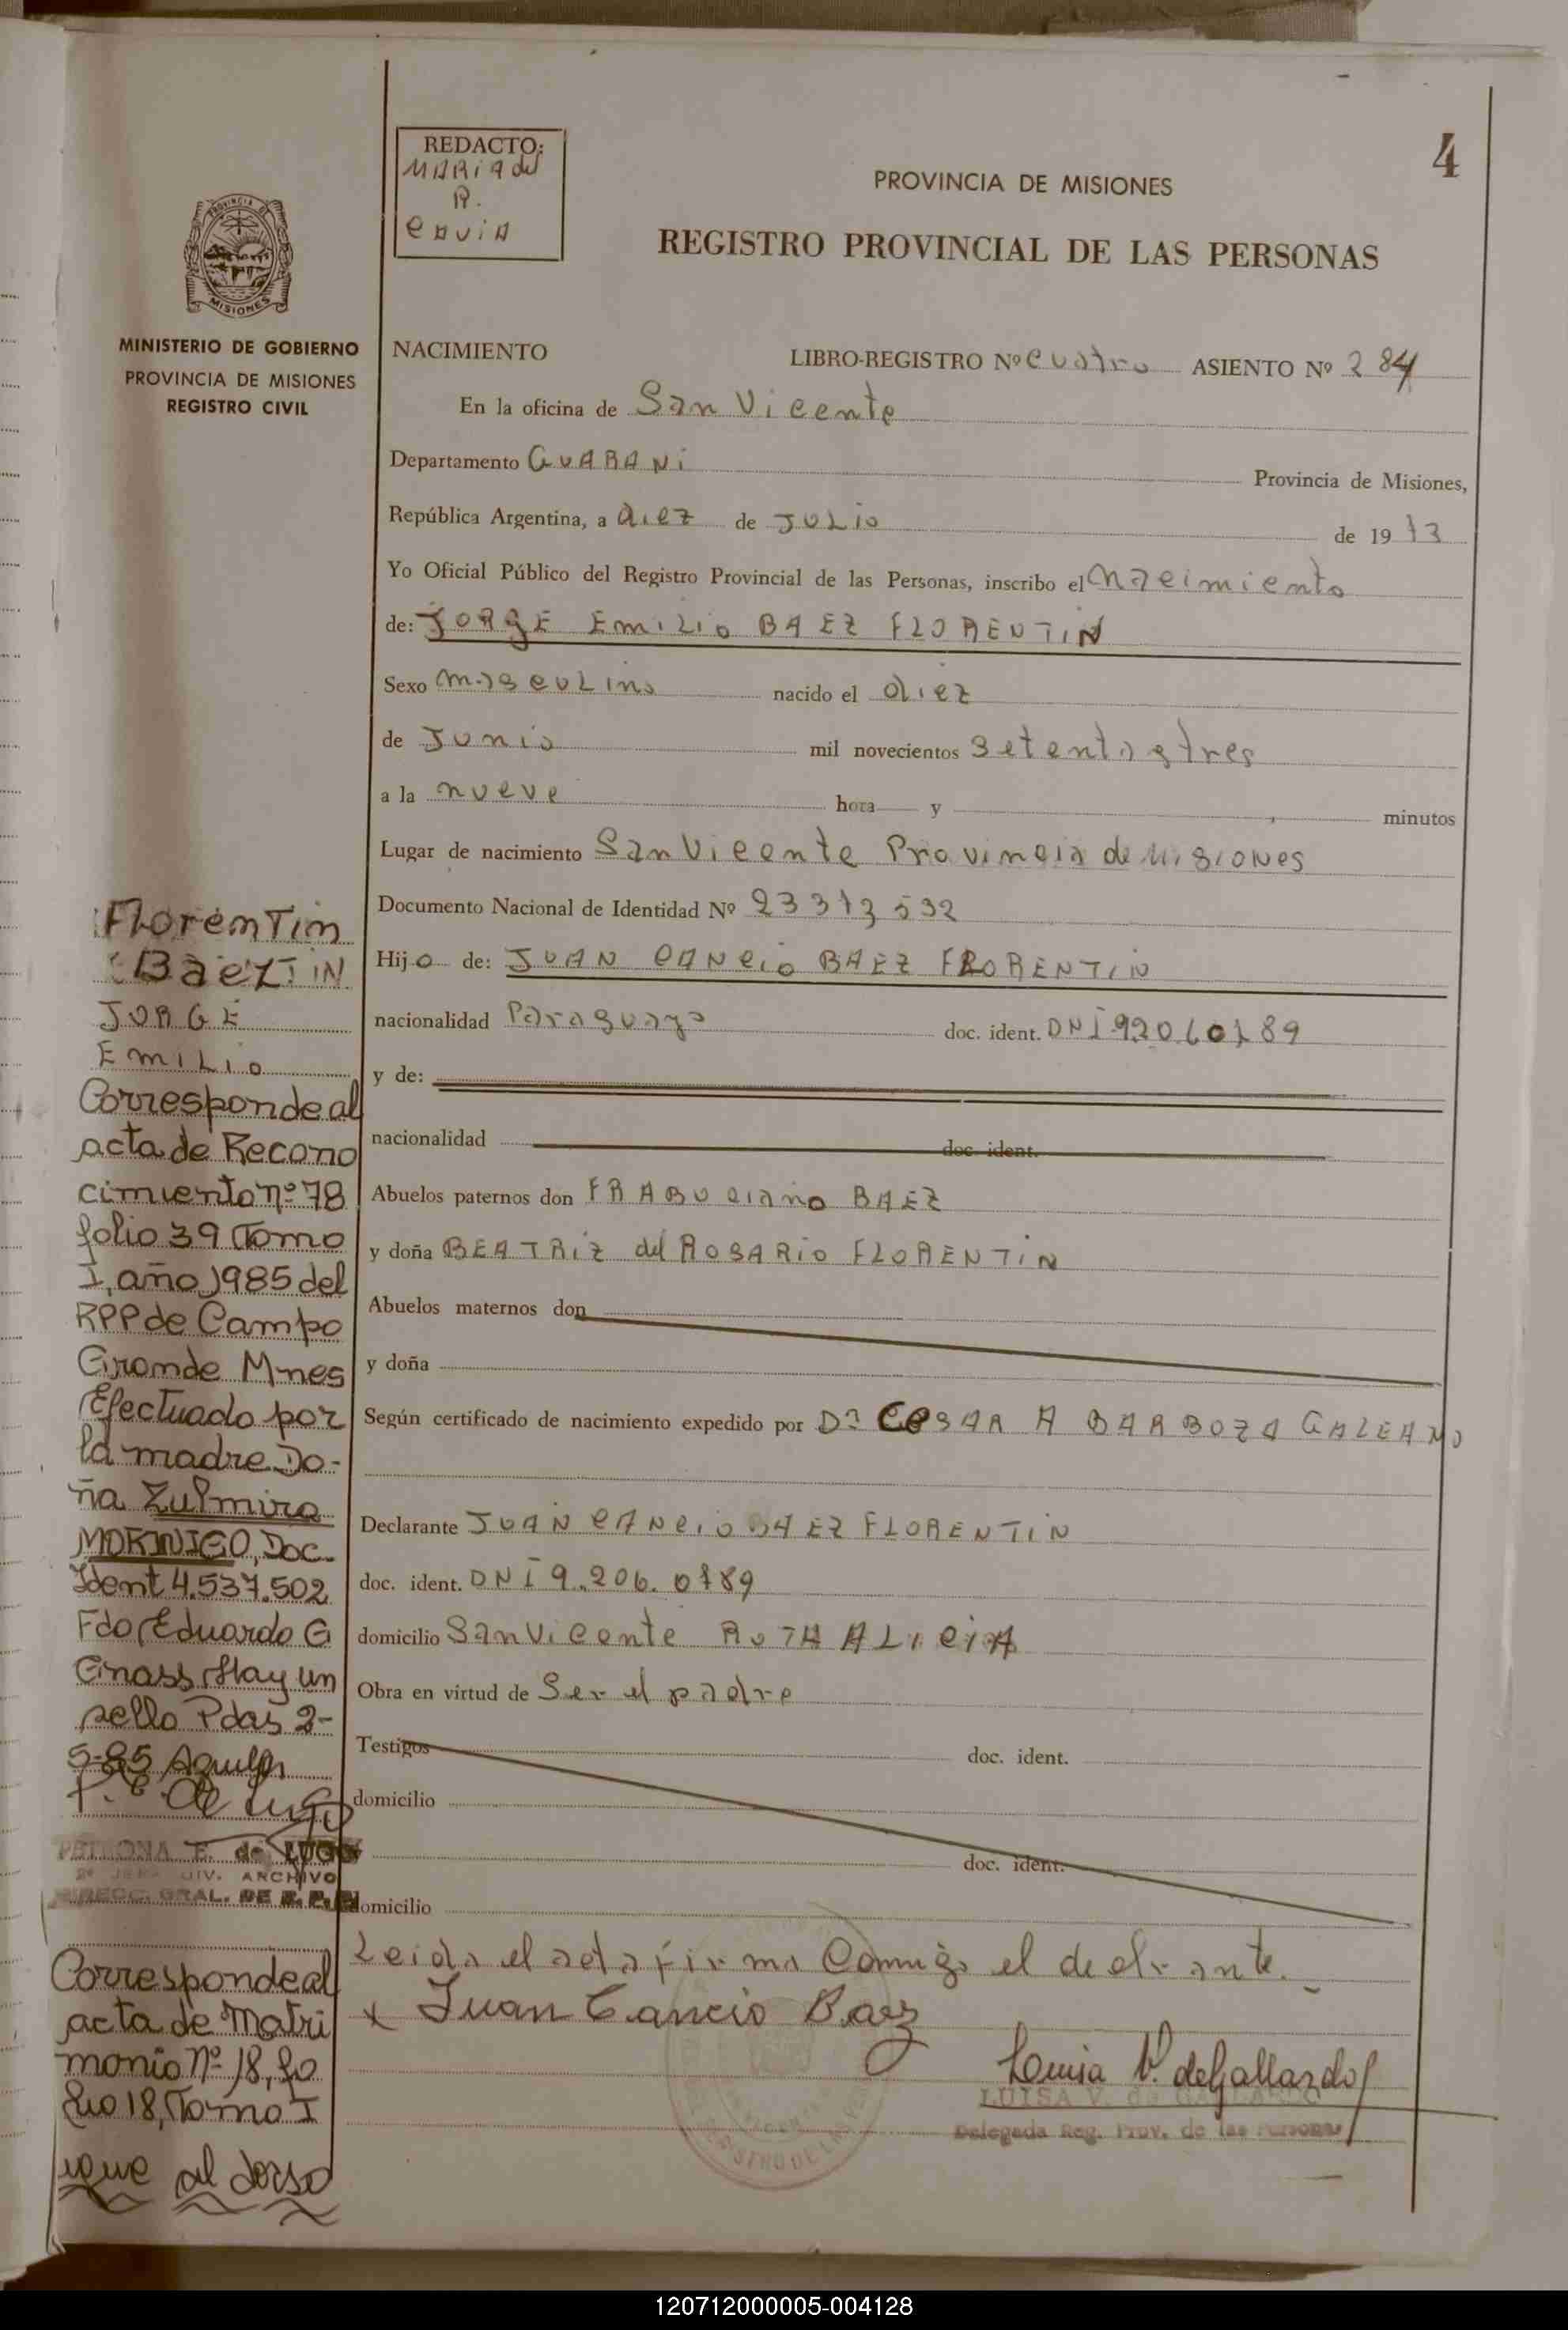 4
REDACTO:
MARIA del
R.
CAVIA
PROVINCIA DE MISIONES
REGISTRO PROVINCIAL DE LAS PERSONAS
PROVINCIA DE
MISIONES
MINISTERIO DE GOBIERNO
PROVINCIA DE MISIONES
REGISTRO CIVIL
NACIMIENTO LIBRO-REGISTRO Nº cuatro ASIENTO Nº 284
En la oficina de San Vicente
Departamento GUARANI Provincia de Misiones,
República Argentina, a diez de JULIO de 19 73
Yo Oficial Público del Registro Provincial de las Personas, inscribo el nacimiento
de: JORGE EMILIO BAEZ FLORENTIN
Sexo masculino nacido el diez
de Junio mil novecientos setenta y tres
a la nueve hora y minutos
Lugar de nacimiento San Vicente Provincia de Misiones
Documento Nacional de Identidad Nº 23373532
Hijo de: JUAN CANCIO BAEZ FLORENTIN
nacionalidad Paraguayo doc. ident. DNI
y de:
nacionalidad doc. ident.
Abuelos paternos don BAEZ
y doña BEATRIZ del ROSARIO FLORENTIN
Abuelos maternos don
y doña
Según certificado de nacimiento expedido por Dr CESAR A BARBOZA GALEANO
Declarante JUAN CANCIO BAEZ FLORENTIN
doc. ident. DNI 9.206.0789
domicilio San Vicente RUTA ALICIA
Obra en virtud de Ser el padre
Testigos doc. ident.
domicilio
doc. ident.
domicilio
Leida el acta firma Conmigo el declarante.
x Juan Cancio Baez
Luisa V. de Gallardo
LUISA V. de GALLARDO
Delegada Reg. Prov. de las Personas
Florentin
Baez
JORGE
EMILIO
Corresponde al
acta de Recono
cimiento nº 78
folio 39 Tomo
I, año 1985 del
RPP de Campo
Grande Mnes
Efectuado por
la madre Do-
ña Zulmira
MORINIGO, Doc.
Ident 4.537.502
Fdo Eduardo G
Grass Hay un
sello Pdas 2-
5-85
P. E. de Lugo
PETRONA E. de LUGO
DIV. ARCHIVO
DIRECC. GRAL. DE R. P. P.
Corresponde al
acta de Matri
monio nº 18, fo
lio 18, Tomo I
sigue al dorso
120712000005-004128